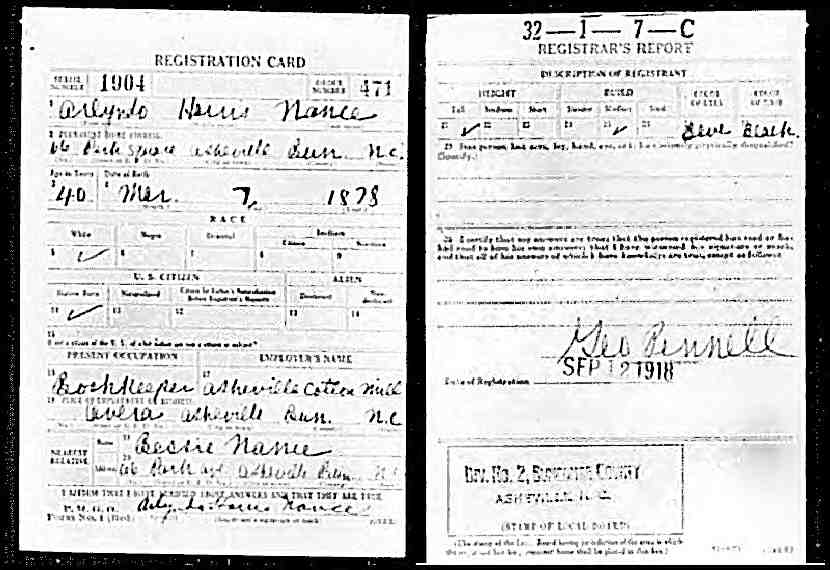 REGISTRATION CARD
SERIAL NUMBER 1904 ORDER NUMBER 471
Arlyndo Harris Nance
Park Square Asheville Bun. N.C.
Age in Years Date of Birth
40 Mar. 7, 1878
RACE
White Negro Oriental Indian
Citizen
5 6 7 8 9
U. S. CITIZEN ALIEN
Native Born Naturalized Citizen by Father's Naturalization Before Registrant's Majority Declarant Non-declarant
10 11 12 13 14
15
If not a citizen of the U. S. of what nation are you a citizen or subject?
PRESENT OCCUPATION EMPLOYER'S NAME
Bookkeeper Asheville Cotton Mill
PLACE OF EMPLOYMENT OR BUSINESS
Asheville Bun. N.C
NEAREST RELATIVE Name Bessie Nance
Address Park Asheville
I AFFIRM THAT I HAVE VERIFIED ABOVE ANSWERS AND THAT THEY ARE TRUE
P. M. G. O.
Form No. 1 (Red) Harris Nance
32—1—7—C
REGISTRAR'S REPORT
DESCRIPTION OF REGISTRANT
HEIGHT BUILD COLOR OF EYES COLOR OF HAIR
Tall Medium Short Slender Medium Stout
21 22 23 24 25 26 Blue Black.
29 Has person lost arm, leg, hand, eye, or is he obviously physically disqualified?
(Specify.)
30 I certify that my answers are true; that the person registered has read or has
had read to him his own answers; that I have witnessed his signature or mark,
and that all of his answers of which I have knowledge are true, except as follows:
Geo Pennell
Date of Registration SEP 12 1918
DIV. No. 2, BUNCOMBE COUNTY
ASHEVILLE, N.C.
(STAMP OF LOCAL BOARD)
(The stamp of the Local Board having jurisdiction of the area in which
the registrant has his permanent home shall be placed in this box.)